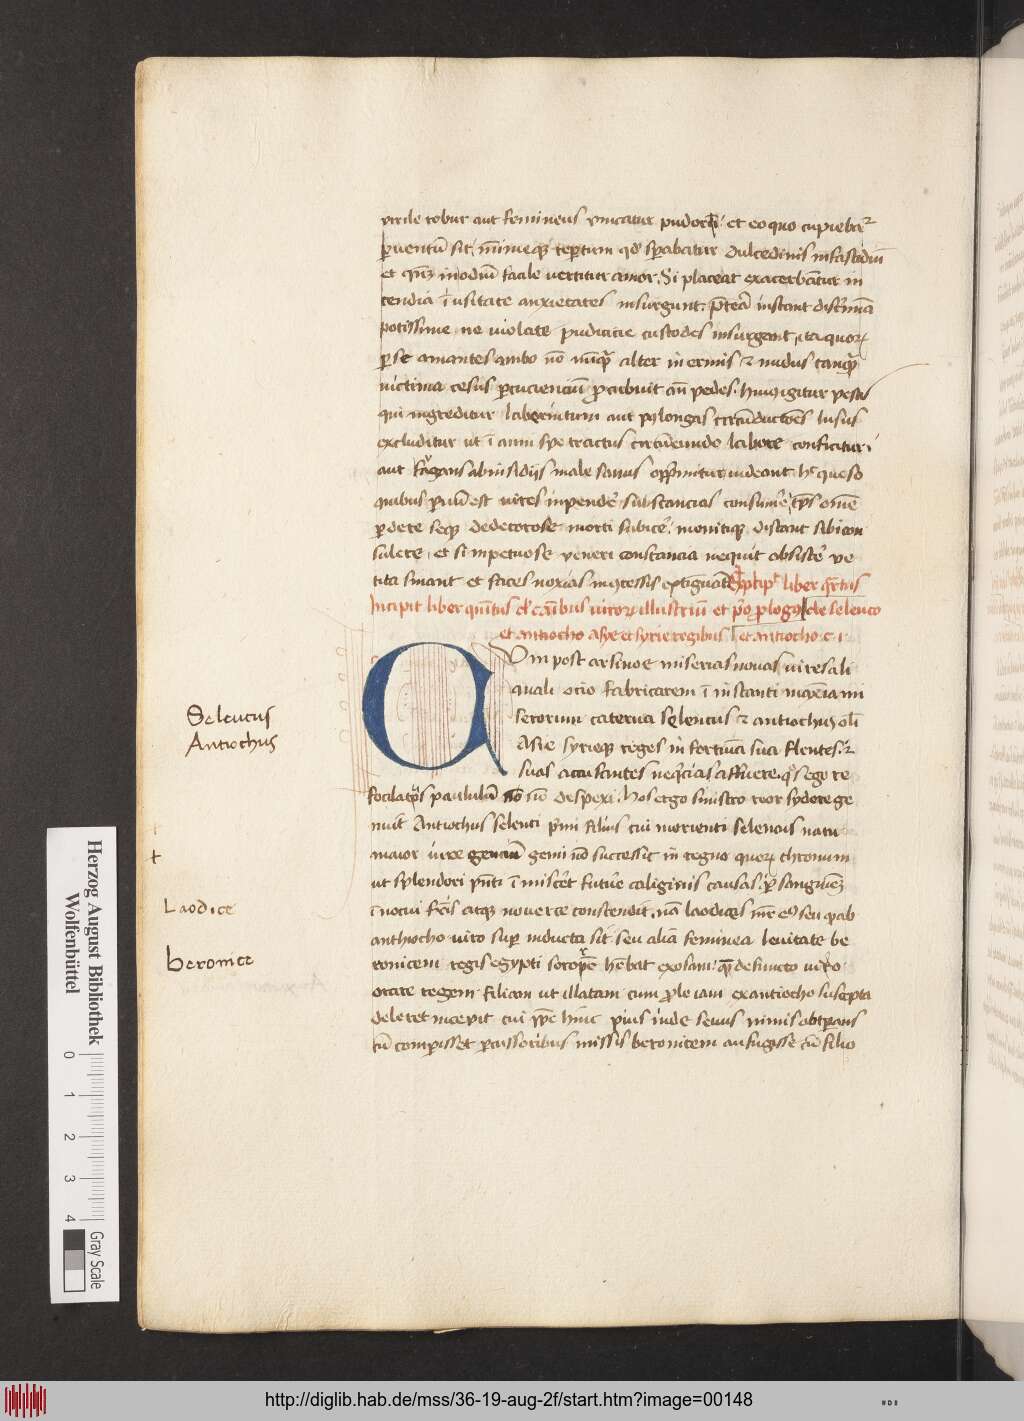 virile robur aut femineus vincatur pudor et eo quo cupiebat
perventū sit, nimiuꝫ repertum qđ sperabatur dulcedinis in fastidiū
et qm̄ in odiū facile vertitur amor. Si placeat exacerbātur in
cendia īusitate anxietates insurgunt. p̄terea instant discrimina
potissime ne violate pudicicie custodes insurgant, ita quorꝫ
per se amantes ambo nō nūq̄ alter inermis et nudus tanq̄
victima cesus percuciencium procubuit an̄ pedes. huius igitur pesti
qui ingreditur laberintum aut per longas circūductōes lusus
excluditur ut ī anni spe tractus circūeundo labore conficitur
aut fragrans ab insidijs male sanus opprimitur videant hc̄ queso
quibus pronū est vires impendē substancias consumē, tp̄s omē
perdere seqꝫ dedecorose morti subicē. monitiqꝫ discant sibi con
sulere, et si impetuose veneri constancia nequit obsistē ve
tita sinant et faces noxias in excessis extiguant Explicit liber quartus
Incipit liber quītus de casibus virorꝫ illustriū et po prologo de seleuco
et antiocho asye et syrie regibus et antiocho c 1
Dum post arsinoe miserias novas vires ali
quali ocio fabricarem ī instanti maxīa mi
serorum caterva Seleucus et antiochus olī
Asie syrieqꝫ reges in fortuna sua flentes et
suas accusantes neq̄cias affuere. qs ego re
focilatꝰ paululū nō sū despexi. hos ergo sinistro reor sydere ge
nuit Antiochus seleuci primi filius cui morienti seleucus natu
maior vire genciū gemi nō successit in regno quorꝫ thronum
ut splendori p̄nti īmiscēt future caliginis causas. per sanguinē
īnocui fr̄is atqꝫ noverce conscendit. nā laodices mr̄ eꝰ seu qꝫ ab
anthiocho viro super inducta sit seu aliā feminea levitate be
ronicem regis egypti sororē hēbat exosam. quā defuncto viro
orare regem filiam ut illatam cum prole iam ex antiocho suscepta
deleret incepit cui qp̄e huic prius inde sevus nimis obtperans
cū comperisset percussoribus missis beronicem aufugisse cū filio
Seleucus
Antiochus
Laodice
beronice
Herzog August Bibliothek
Wolfenbüttel
0 1 2 3 4
Gray Scale
http://diglib.hab.de/mss/36-19-aug-2f/start.htm?image=00148